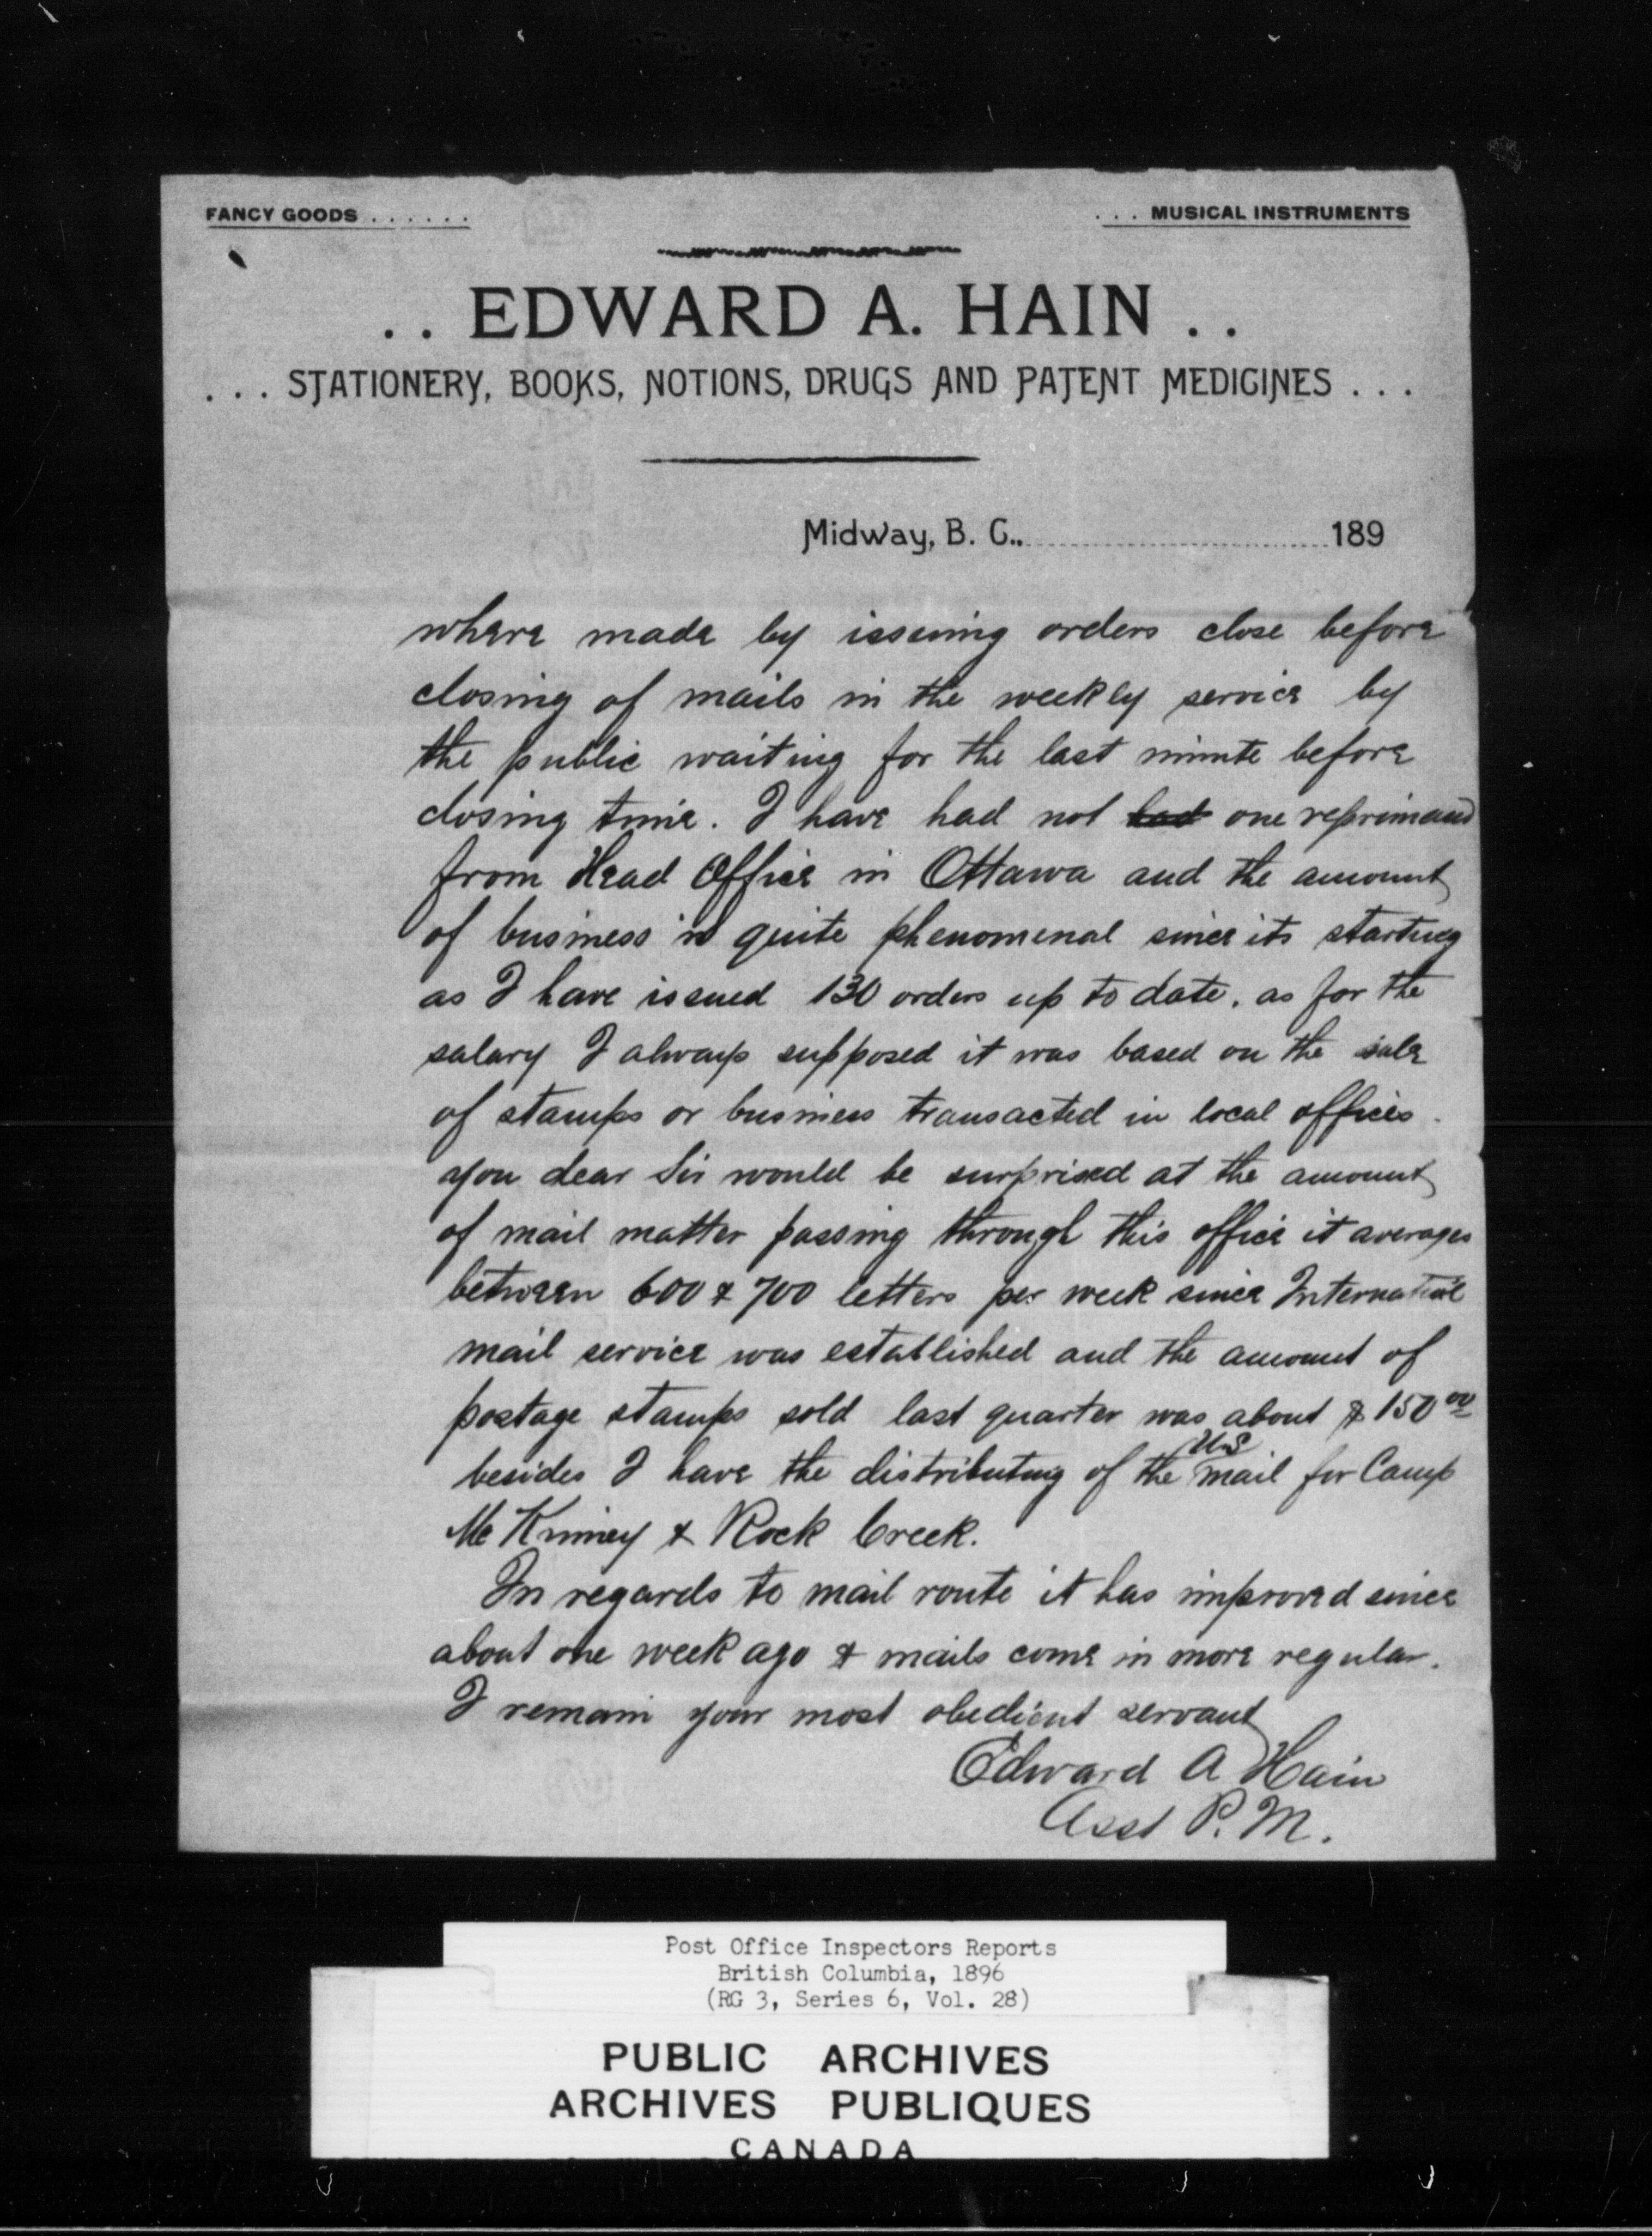 FANCY GOODS . . . . . .
. . . MUSICAL INSTRUMENTS
. . EDWARD A. HAIN . .
. . . STATIONERY, BOOKS, NOTIONS, DRUGS AND PATENT MEDICINES . . .
Midway, B. C., 189
where made by issuing orders close before
closing of mails in the weekly service by
the public waiting for the last minute before
closing time. I have had not had one reprimand
from Head Office in Ottawa and the amount
of business is quite phenomenal since its starting
as I have issued 130 orders up to date. as for the
salary I always supposed it was based on the sale
of stamps or business transacted in local offices.
you dear Sir would be surprised at the amount
of mail matter passing through this office it averages
between 600 & 700 letters per week since
mail service was established and the amount of
postage stamps sold last quarter was about $150 00
besides I have the distributing of the US mail for Camp
McKinney & Rock Creek.
In regards to mail route it has improved since
about one week ago & mails come in more regular.
I remain your most obedient servant
Edward A Hain
Asst P.M.
Post Office Inspectors Reports
British Columbia, 1896
(RG 3, Series 6, Vol. 28)
PUBLIC ARCHIVES
ARCHIVES PUBLIQUES
CANADA